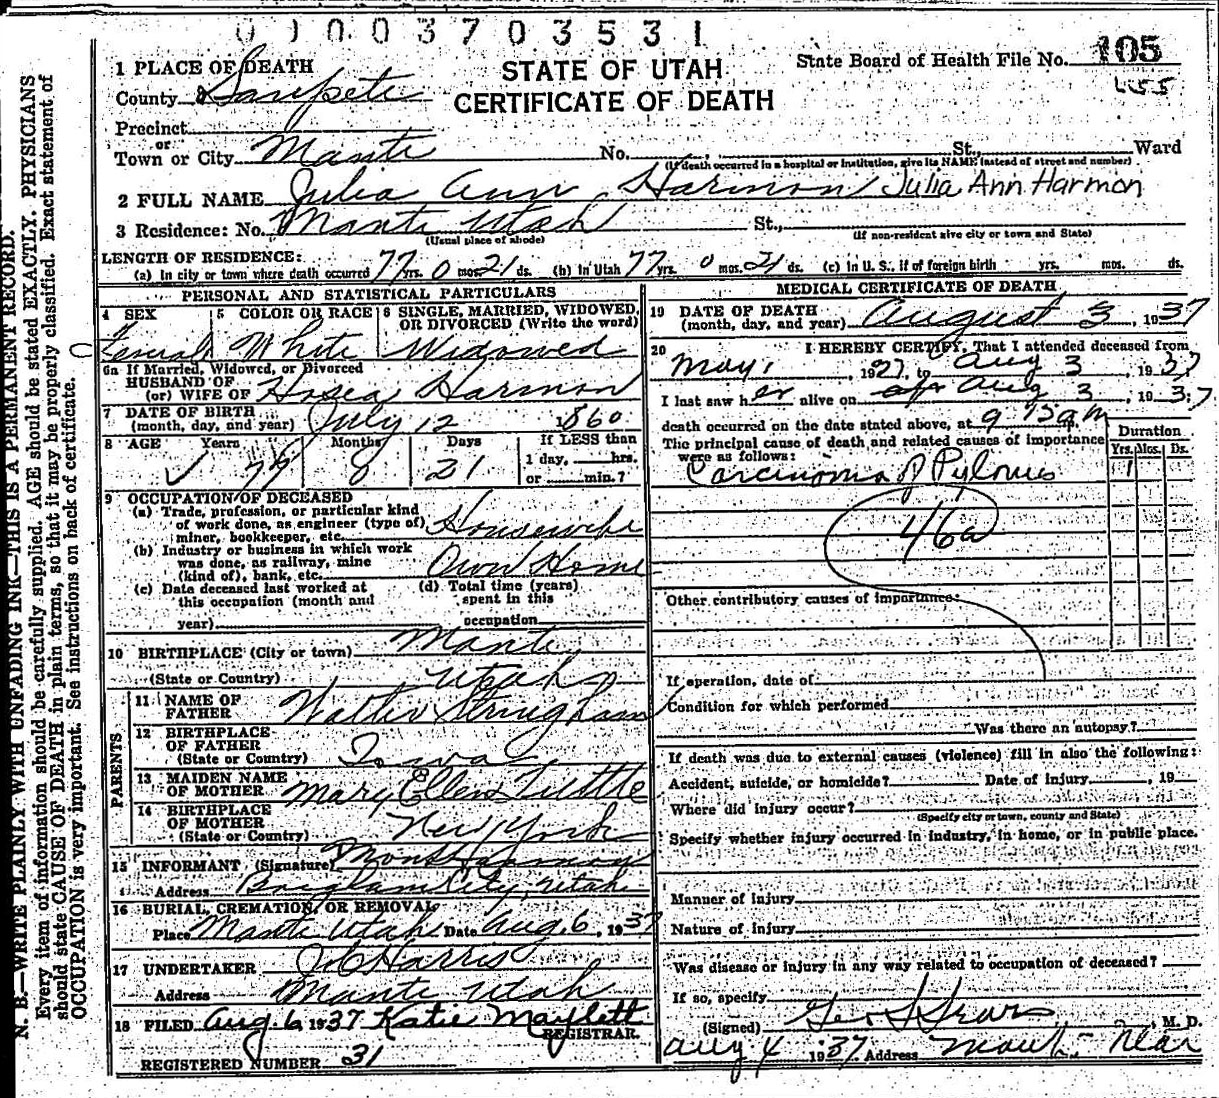 0 1 0 0 3 7 0 3 5 3 1
STATE OF UTAH
CERTIFICATE OF DEATH
State Board of Health File No. 105
455
1 PLACE OF DEATH
County Sanpete
Precinct
or
Town or City Manti No. St., Ward
(If death occurred in a hospital or institution, give its NAME instead of street and number)
2 FULL NAME Julia Ann Harmon Julia Ann Harmon
3 Residence: No. Manti Utah St.,
(Usual place of abode) (If non-resident give city or town and State)
LENGTH OF RESIDENCE:
(a) In city or town where death occurred 77 yrs. 0 mos. 21 ds. (b) In Utah 77 yrs. 0 mos. 21 ds. (c) in U. S., if of foreign birth yrs. mos. ds.
PERSONAL AND STATISTICAL PARTICULARS
4 SEX 5 COLOR OR RACE 6 SINGLE, MARRIED, WIDOWED, OR DIVORCED (Write the word)
Female White Widowed
6a If Married, Widowed, or Divorced
HUSBAND OF
(or) WIFE OF Hosea Harmon
7 DATE OF BIRTH
(month, day, and year) July 12 1860
8 AGE Years Months Days If LESS than
1 day, hrs.
77 0 21 or min.?
9 OCCUPATION OF DECEASED
(a) Trade, profession, or particular kind
of work done, as engineer (type of)
miner, bookkeeper, etc. Housewife
(b) Industry or business in which work
was done, as railway, mine
(kind of), bank, etc. Own Home
(c) Date deceased last worked at
this occupation (month and
year)
(d) Total time (years)
spent in this
occupation
10 BIRTHPLACE (City or town) Manti
(State or Country) Utah
PARENTS
11 NAME OF
FATHER Walter Stringham
12 BIRTHPLACE
OF FATHER
(State or Country) Iowa
13 MAIDEN NAME
OF MOTHER Mary Ellen Tuttle
14 BIRTHPLACE
OF MOTHER
(State or Country) New York
15 INFORMANT (Signature) Mont Harmon
Address Brigham City, Utah
16 BURIAL, CREMATION, OR REMOVAL
Place Manti Utah Date Aug. 6, 1937
17 UNDERTAKER J C Harris
Address Manti Utah
18 FILED Aug. 6 1937 Katie Maylett
REGISTRAR.
REGISTERED NUMBER 31
MEDICAL CERTIFICATE OF DEATH
19 DATE OF DEATH
(month, day, and year) August 3, 1937
20 I HEREBY CERTIFY, That I attended deceased from
May 1, 1927, to Aug 3, 1937
I last saw her alive on Aug 3, 1937
death occurred on the date stated above, at 9 15 a m
The principal cause of death and related causes of importance
were as follows:
Duration
Yrs. Mos. Ds.
Carcinoma of Pylorus 1
46a
Other contributory causes of importance:
If operation, date of
Condition for which performed
Was there an autopsy?
If death was due to external causes (violence) fill in also the following:
Accident, suicide, or homicide? Date of injury, 19
Where did injury occur?
(Specify city or town, county and State)
Specify whether injury occurred in industry, in home, or in public place.
Manner of injury
Nature of injury
Was disease or injury in any way related to occupation of deceased?
If so, specify
(Signed) Geo L Sears, M. D.
Aug 4 1937 Address Manti Utah
N. B.—WRITE PLAINLY WITH UNFADING INK—THIS IS A PERMANENT RECORD.
Every item of information should be carefully supplied. AGE should be stated EXACTLY. PHYSICIANS
should state CAUSE OF DEATH in plain terms, so that it may be properly classified. Exact statement of
OCCUPATION is very important. See instructions on back of certificate.